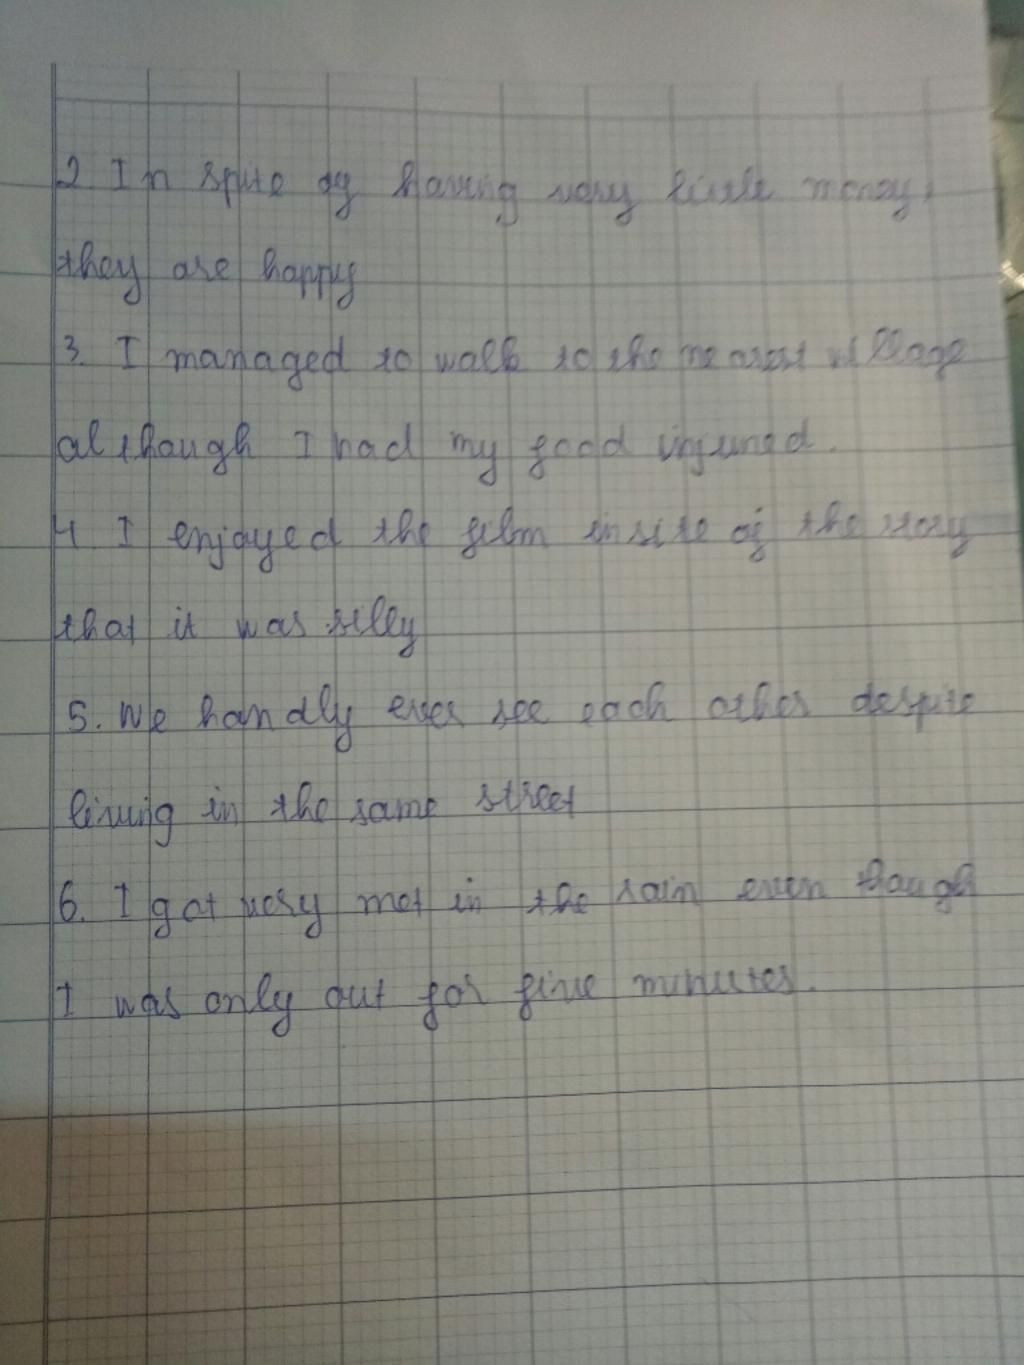 2. In spite og having very little money,
they are happy
3. I managed to walk to the nearest village
although I had my good injured.
4. I enjoyed the film insite of the story
that it was silly
5. We handly ever see each other despite
living in the same street
6. I got very met in the rain even though
I was only out for five minutes.